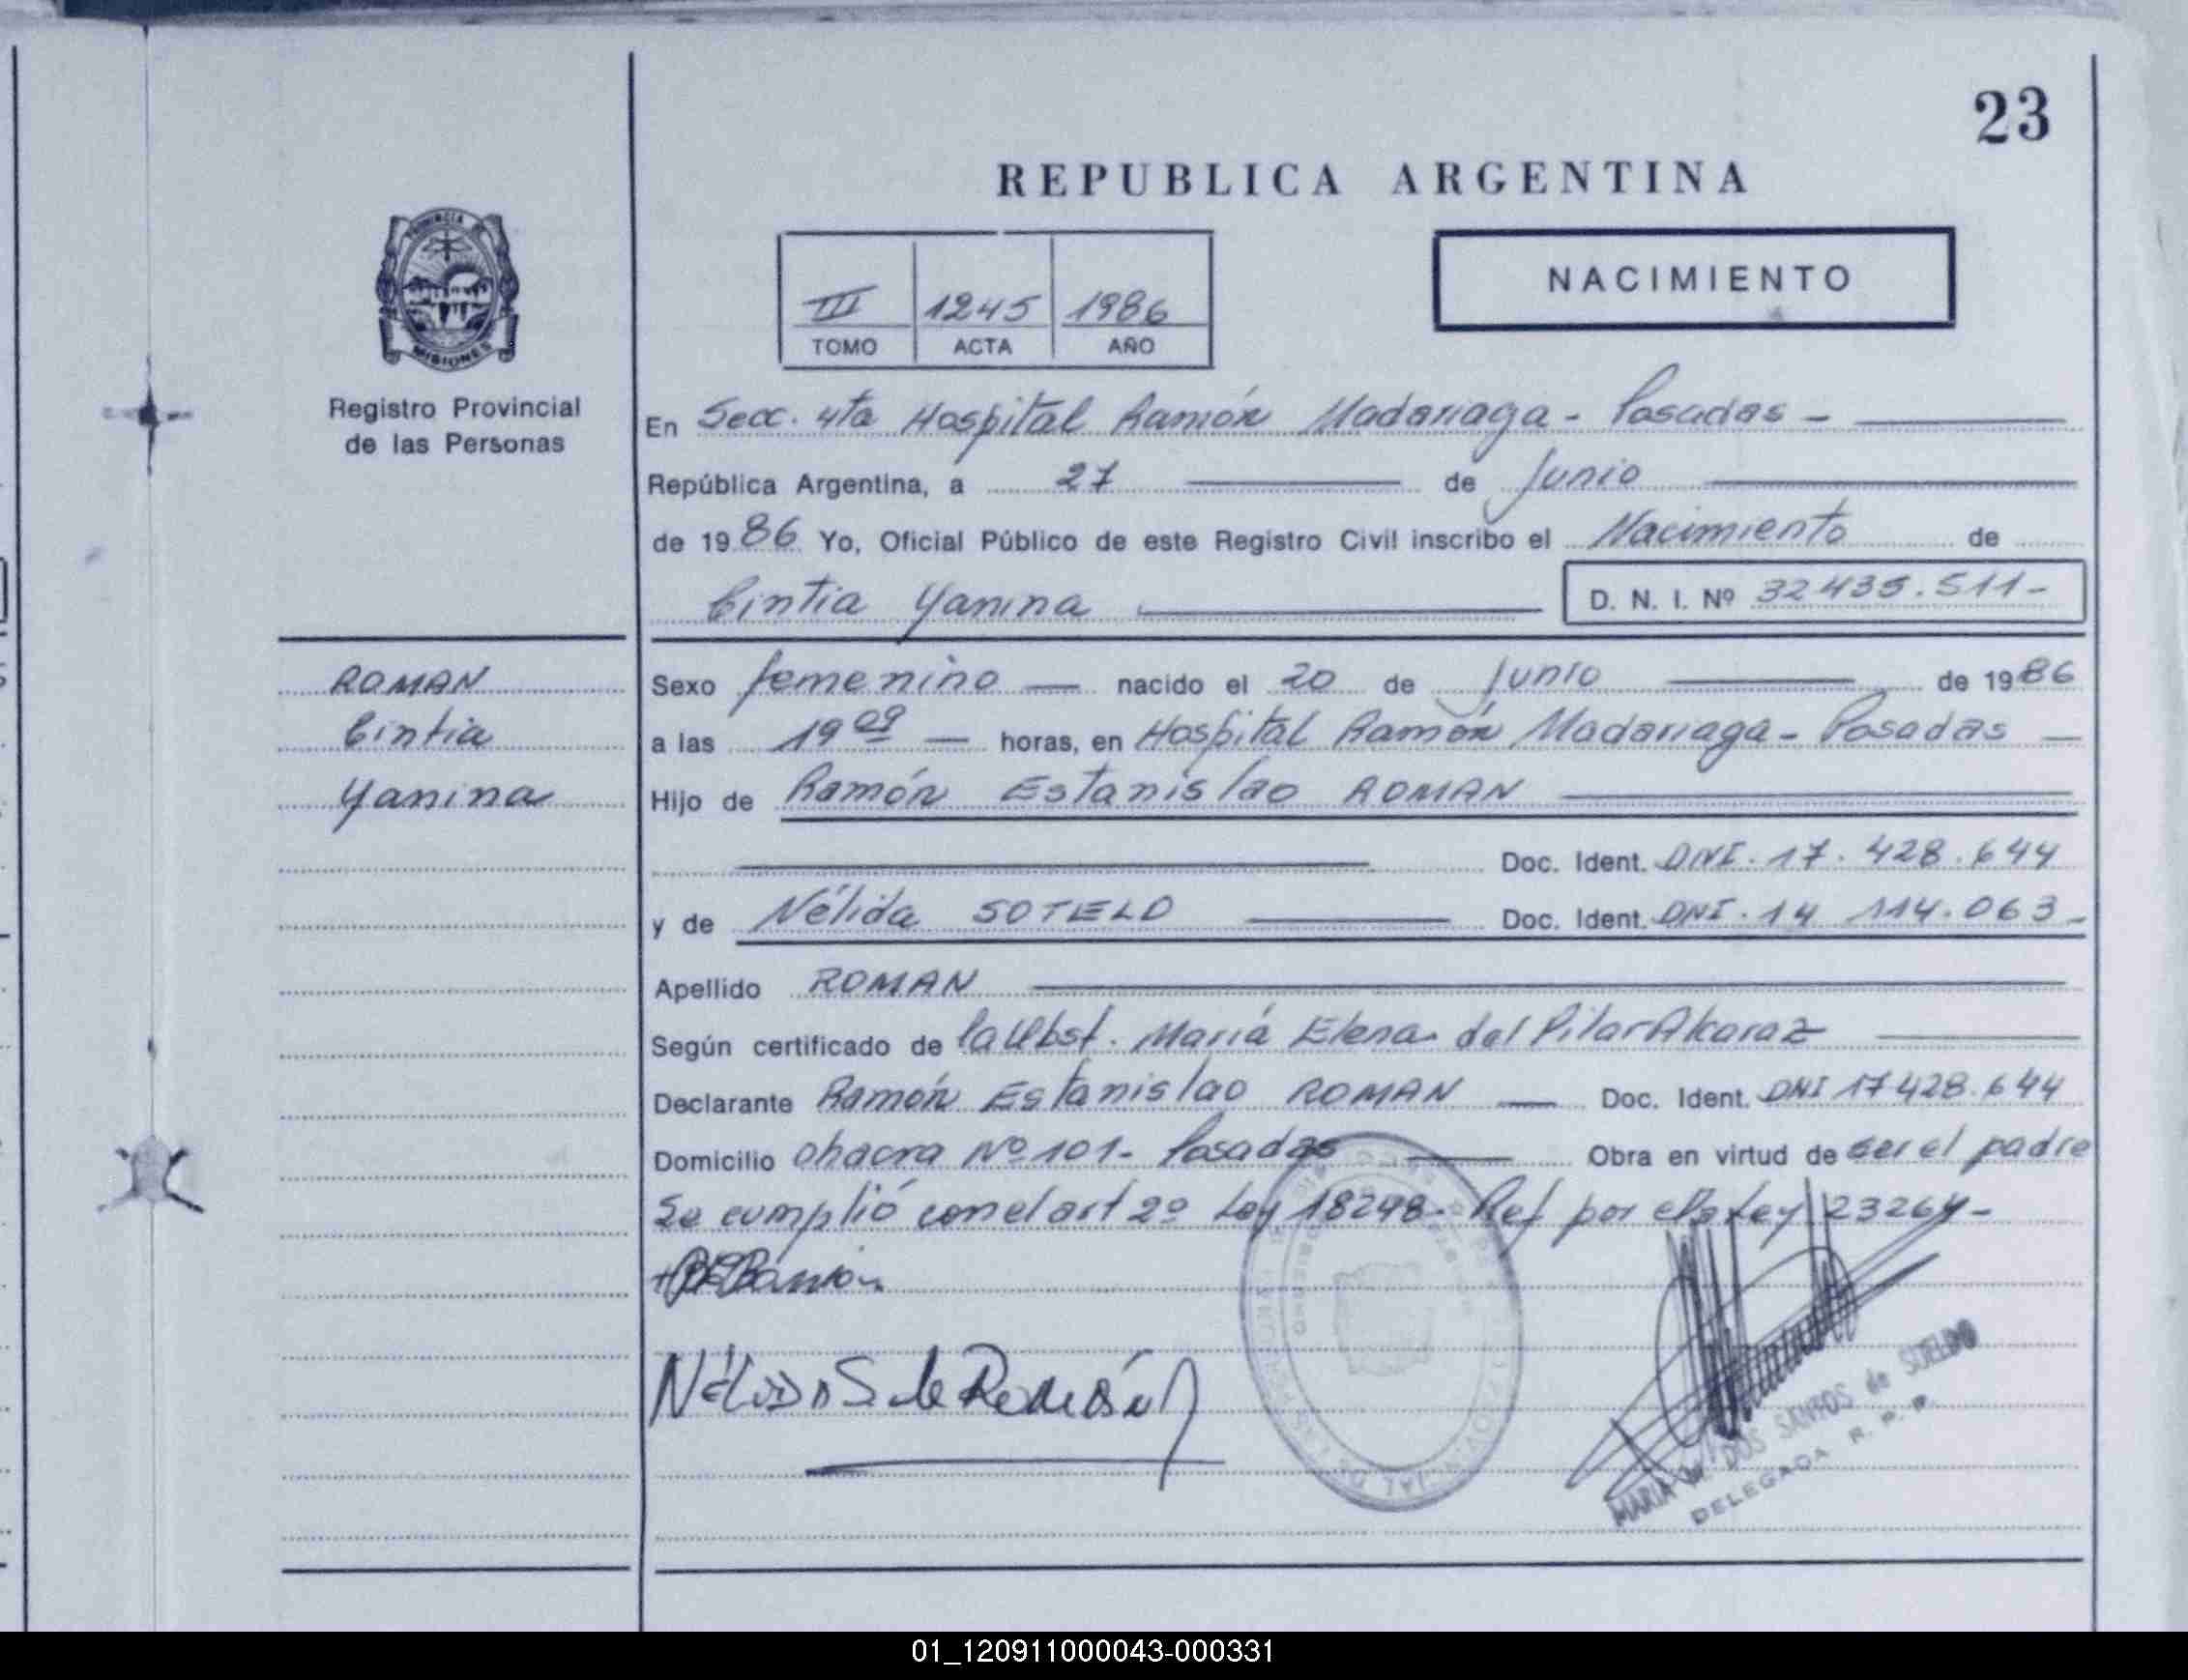 23
REPUBLICA ARGENTINA
PROVINCIA
MISIONES
Registro Provincial
de las Personas
III 1245 1986
TOMO ACTA AÑO
NACIMIENTO
En Secc. 4ta Hospital Ramón Madariaga - Posadas -
República Argentina, a 27 de Junio
de 1986 Yo, Oficial Público de este Registro Civil inscribo el Nacimiento de
Cintia Yanina D. N. I. Nº 32435.511-
ROMAN
Cintia
Yanina
Sexo femenino nacido el 20 de Junio de 1986
a las 19 09 horas, en Hospital Ramón Madariaga - Posadas
Hijo de Ramón Estanislao ROMAN
Doc. Ident. DNI. 17. 428.644
y de Nélida SOTELO Doc. Ident. DNI. 14 114.063-
Apellido ROMAN
Según certificado de la Obst. María Elena del Pilar Alcaraz
Declarante Ramón Estanislao ROMAN Doc. Ident. DNI 17428.644
Domicilio chacra Nº 101- Posadas Obra en virtud de ser el padre
Se cumplió con el art 2º Ley 18248- Ref por Ley 23264-
Nélida S de Román
MARIA DOS SANTOS de SUELDO
DELEGADA R. P. P.
01_120911000043-000331